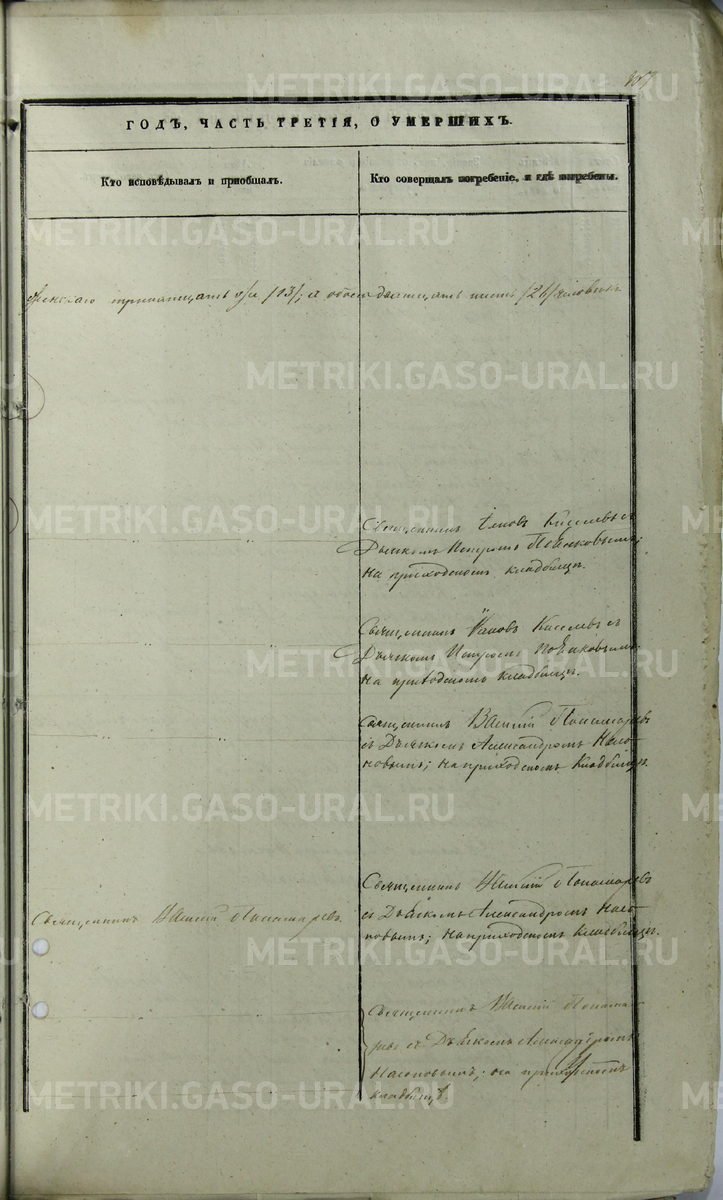 ГОДЪ, ЧАСТЬ ТРЕТІЯ, О УМЕРШИХЪ.
Кто исповѣдывалъ и пріобщалъ.
Кто совершалъ погребеніе, и гдѣ погребены.
женскаго тринатцать /13/; а обоего дватцать шесть /26/ человѣкъ
Священникъ Іяковъ Киселевъ съ
Дьячкомъ Петромъ
на приходскомъ кладбищѣ.
Священникъ Іаковъ Киселевъ съ
Дьячкомъ Петромъ
на приходскомъ кладбищѣ.
Священникъ Василій Пономаревъ
съ Дьячкомъ Александромъ Насо-
новымъ; на приходскомъ Кладбищѣ.
Священникъ Василій Пономаревъ.
Священникъ Василій Пономаревъ
съ Дьячкомъ Александромъ Насо-
новымъ; на приходскомъ кладбищѣ.
Священникъ Василій Понома-
ревъ съ Дьячкомъ Александромъ
Насоновымъ; на приходскомъ
кладбищѣ.
METRIKI.GASO-URAL.RU